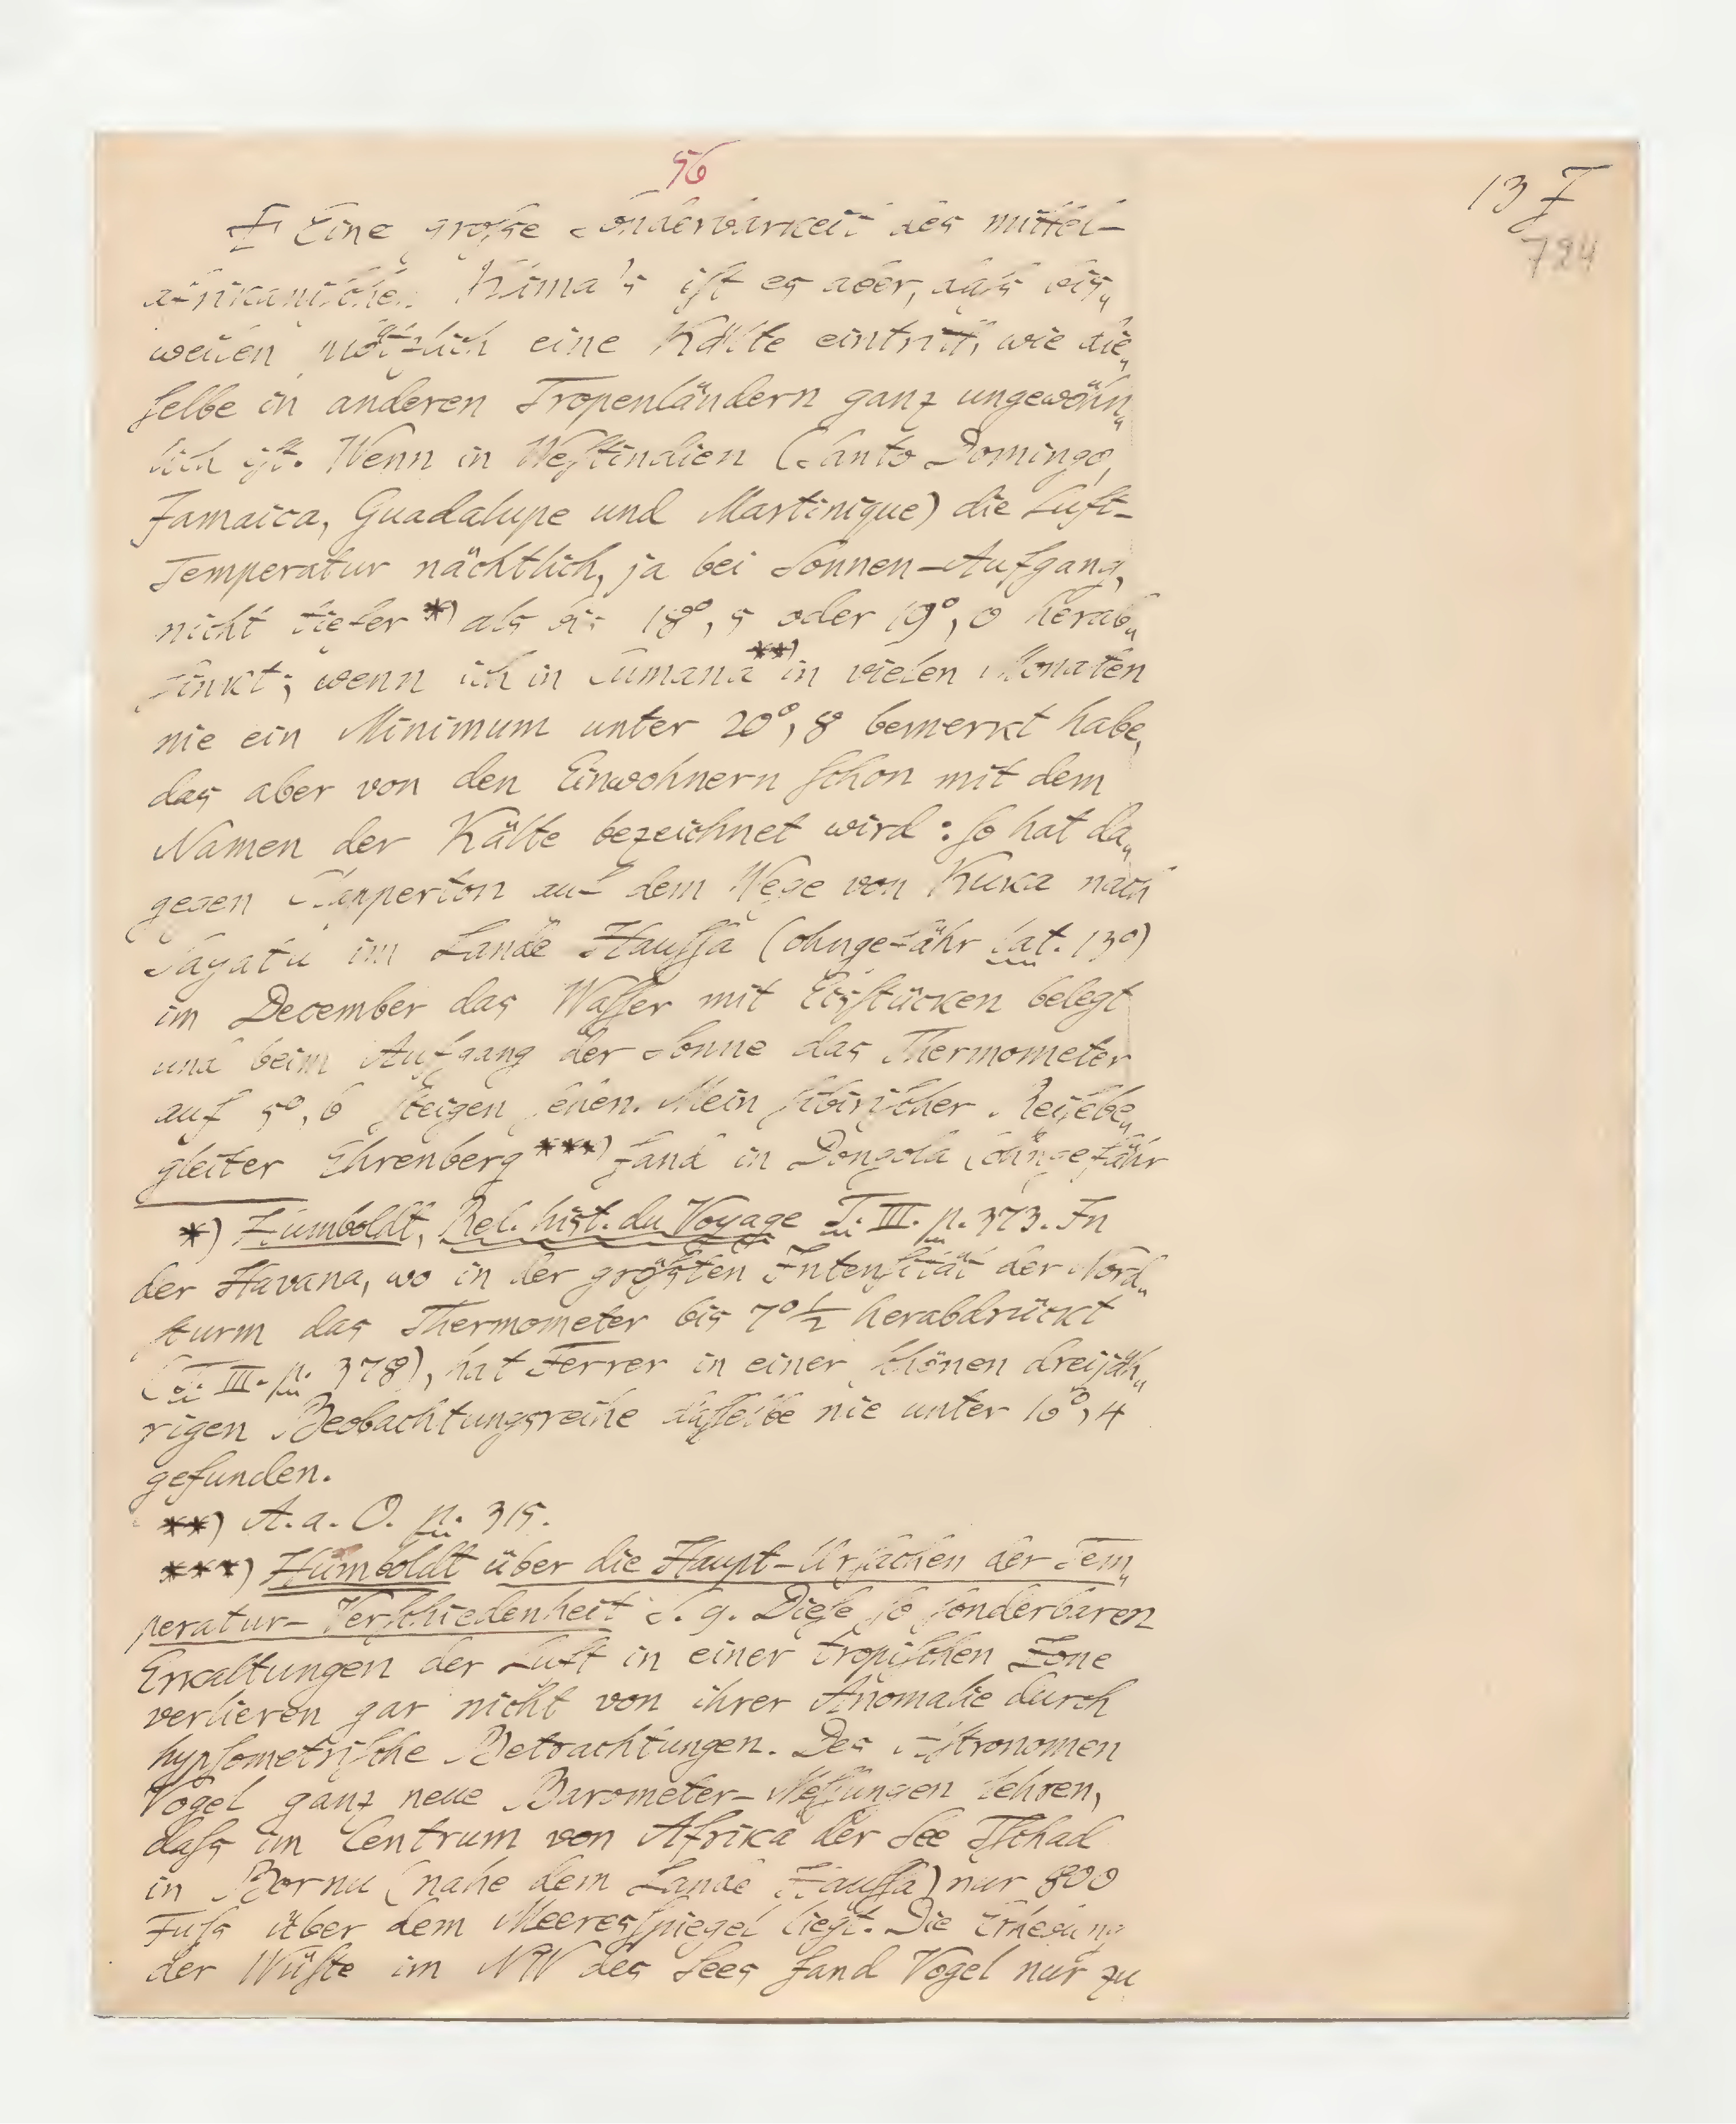 56
13 F
784
F Eine große Sonderbarkeit des mittel-
afrikanischen Klima's ist es aber, daß bis„
weilen plötzlich eine Kälte eintritt, wie die„
selbe in anderen Tropenländern ganz ungewöhn„
lich ist. Wenn in Westindien (Santo Domingo,
Jamaica, Guadalupe und Martinique) die Luft-
Temperatur nächtlich, ja bei Sonnen-Aufgang,
nicht tiefer *) als bis 18°,5 oder 19°,0 herab„
sinkt; wenn ich in Cumana **) in vielen Monaten
nie ein Minimum unter 20°,8 bemerkt habe,
das aber von den Einwohnern schon mit dem
Namen der Kälte bezeichnet wird: so hat da„
gegen Clapperton auf dem Wege von Kuka nach
im Lande Haussa (ohngefähr lat. 13°)
im December das Wasser mit Eisstücken belegt
und beim Aufgang der Sonne das Thermometer
auf 5°,6 steigen sehen. Mein sibirischer Reisebe„
gleiter Ehrenberg ***) fand in Dongola (ohngefähr
*) Humboldt, Rel. hist. du Voyage T. III. p. 373. In
der Havana, wo in der größten Intensität der Nord„
sturm das Thermometer bis 7°½ herabdrückt
(T. III. p. 378), hat Ferrer in einer schönen dreijäh„
rigen Beobachtungsreihe dasselbe nie unter 16°,4
gefunden.
**) A. a. O. p. 315.
***) Humboldt über die Haupt-Ursachen der Tem„
peratur-Verschiedenheit S. 9. Diese so sonderbaren
Erkaltungen der Luft in einer tropischen Zone
verlieren gar nicht von ihrer Anomalie durch
hypsometrische Betrachtungen. Des Astronomen
Vogel ganz neue Barometer-Messungen lehren,
dass im Centrum von Afrika der See Tschad
in Bornu (nahe dem Lande Haussa) nur 800
Fuss über dem Meeresspiegel liegt. Die Erhebung
der Wüste im NW des Sees fand Vogel nur zu